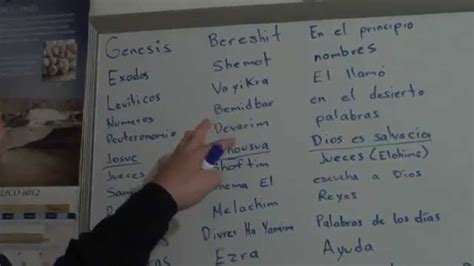 Genesis
Exodos
Leviticos
Numeros
Deuteronomio
Josue
Jueces
Bereshit
Shemot
Vayikra
Bemidbar
Devarim
Shoftim
Shema El
Melachim
Divres Ha Yamim
Ezra
En el principio
nombres
El llamó
en el desierto
palabras
Dios es salvacion
Jueces (Elohime)
escucha a Dios
Reyes
Palabras de los dias
Ayuda
6012